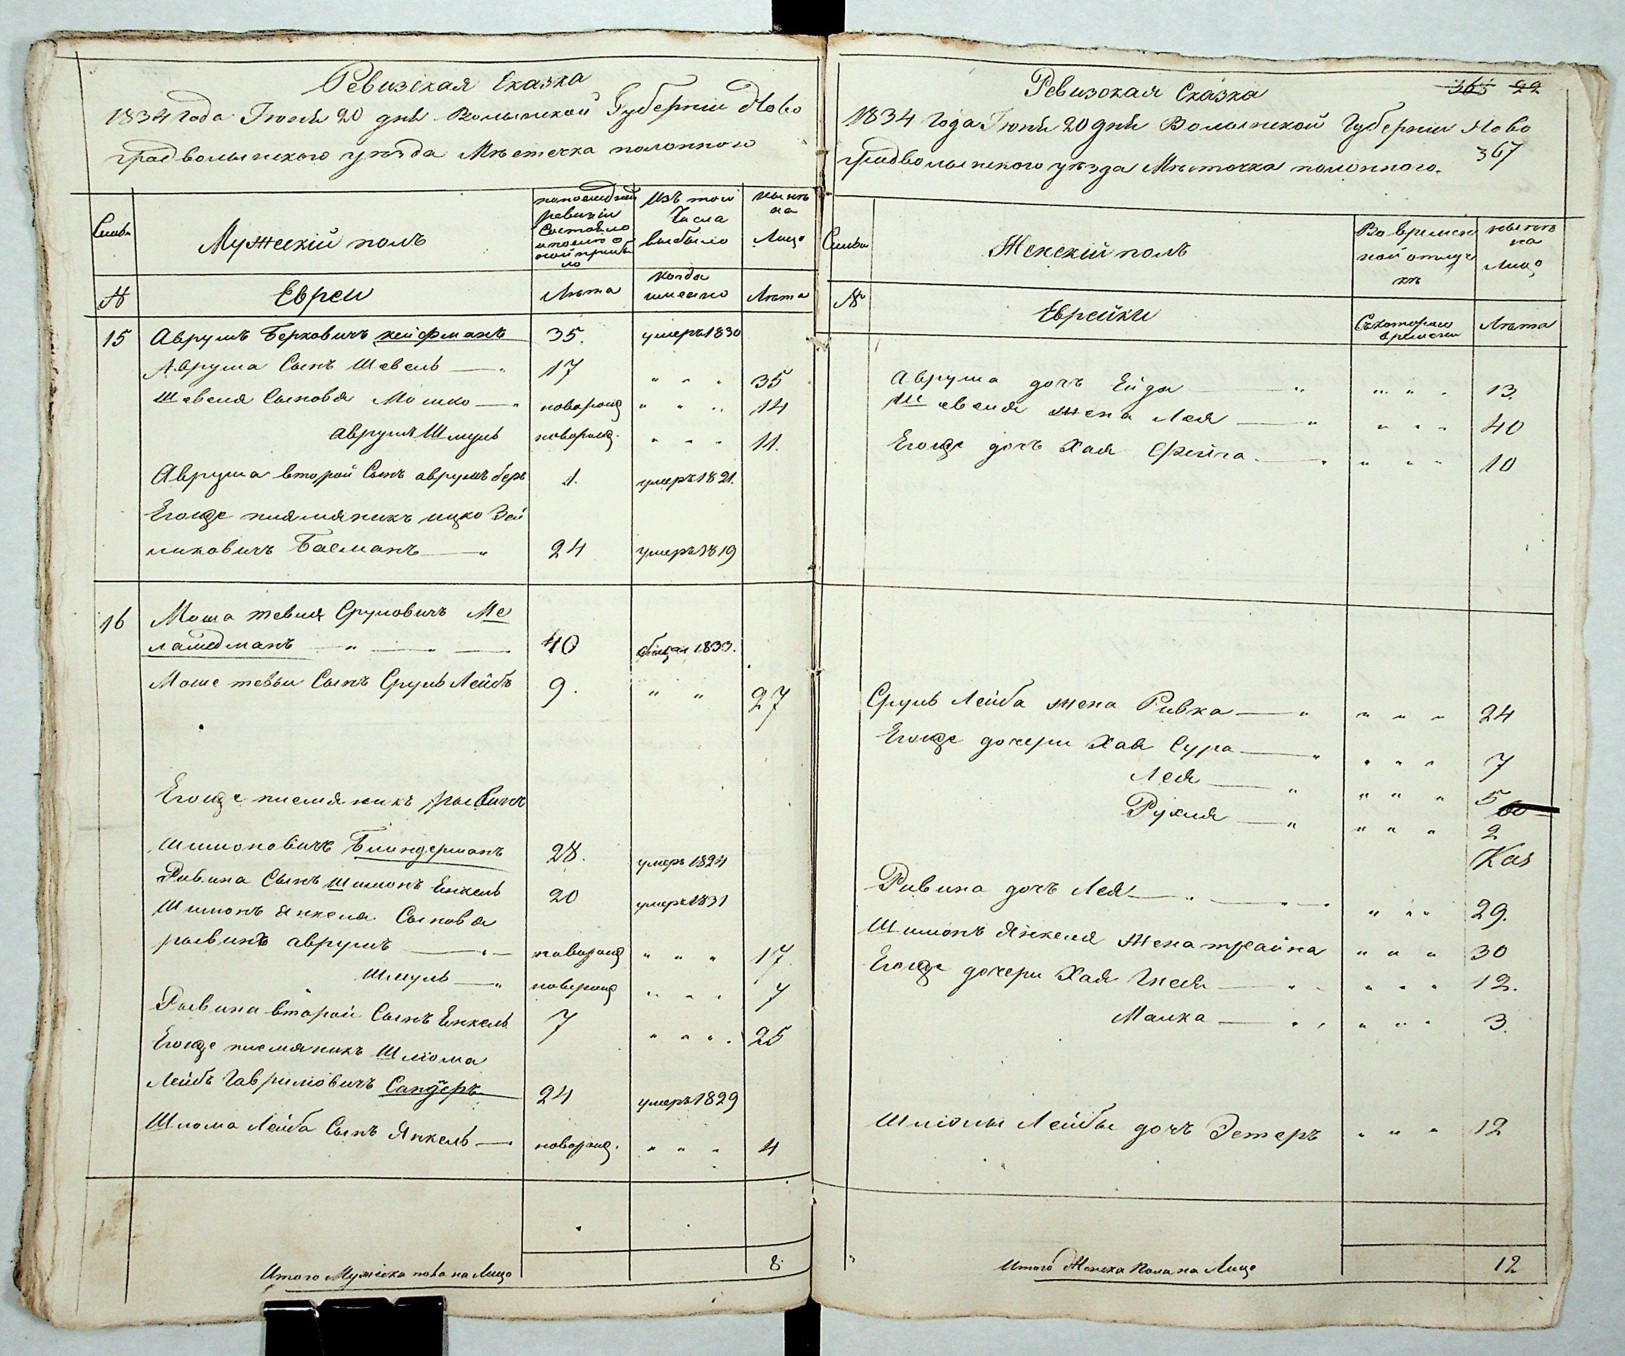 Ревизская Сказка
1834 года Июня 20 дня Волынской Губернии Ново
градволынского уезда Местечка полонного
Семьи
Мужеский полъ
по последней ревизии состояло и после оной прибыло
Изъ того Числа выбыло
ныне на Лицо
№
Евреи
Лета
когда именно
Лета
15 Аврумъ Берковичъ Кейфманъ 35. умеръ 1830
Аврума Сынъ Шевель 17 " " " 35
Шевеля Сыновя Мошко новорожд " " " 14
аврумъ Шмуль новорожд. " " " 11.
Аврума второй Сынъ аврумъ беръ 1. умеръ 1821.
Егожъ племяникъ ицко Зей
ликовичъ Басманъ 24 умеръ 1819
16 Моша тевля Срулович Ме
ламедманъ 40 1833.
Моше тевьи Сынъ Сруль Лейбъ 9. " " 27
Егоже племяникъ рывинъ
Шимоновичъ Блиндерманъ 28. умеръ 1824
Рывина Сынъ Шимонъ Енкель 20 умеръ 1831
Шимонъ Янкеля Сыновя
рывинъ аврумъ новорожд " " " 17
Шмуль новорожд " " " 7
Рывина второй Сынъ Енкель 7 " " " 25
Егоже племяникъ Шлома
Лейбъ Гавриловичъ Сандеръ 24 умеръ 1829
Шлома Лейба Сынъ Янкель новорожд. " " " 4
Итого Мужеска пола на Лицо 8.
Ревизская Сказка
365 22
1834 Года Июня 20 дня Волынской Губернии Ново
367
градволынского уезда Местечка полонного.
Семьи
Женский полъ
Во временной отлучке
ныне на Лицо
№
Еврейки
Съ которого времени
Лета
Аврума дочъ Ейда " " " 13.
Шевеля жена Лея " " " 40
Егоже дочъ Хая Фейга " " " 10
Сруль Лейба жена Ривка " " " 24
Егоже дочери Хая Сура " " " 7
Лея " " " 5
Рухля " " " 2
Рывина дочъ Лея " " " 29.
Шимонъ Янкеля жена трайна " " " 30
Егоже дочери Хая Гнеся " " " 12.
Малка " " " 3.
Шлиомы Лейбы дочъ Эстеръ " " " 12
Итого Женска Пола на Лицо 12